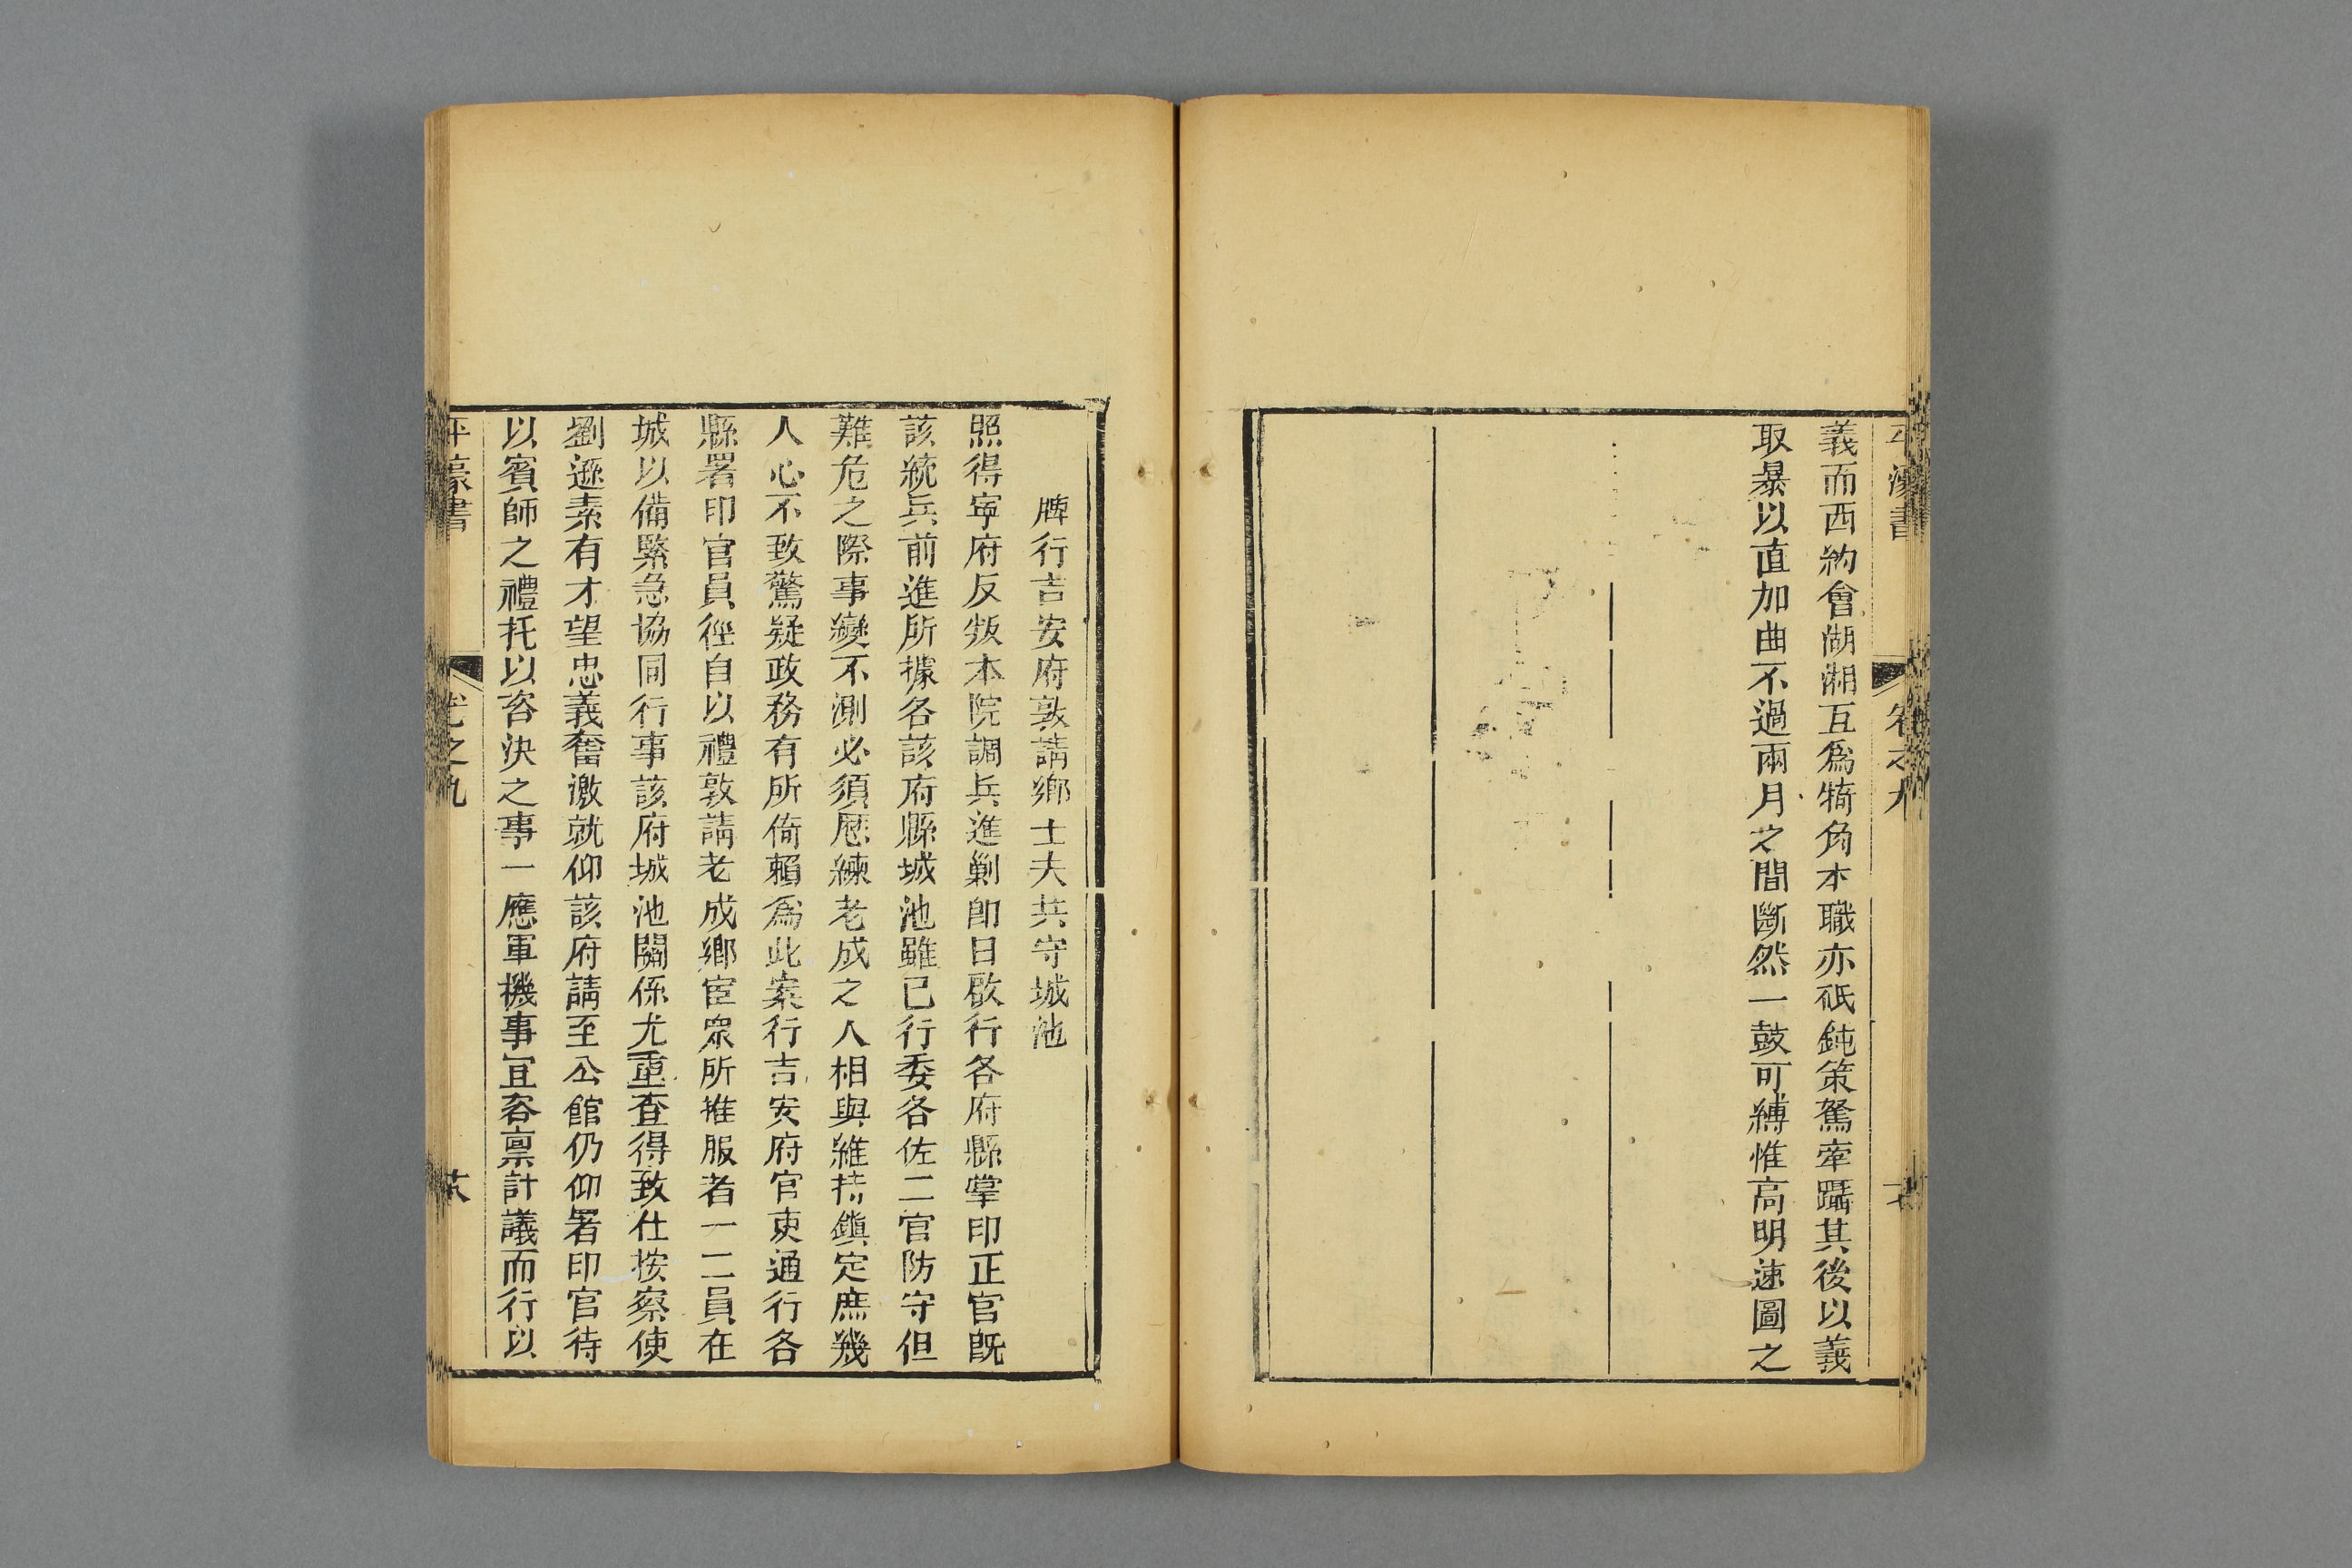 平濠書 卷之九
義而西約會湖湘互爲犄角本職亦砥鈍策駑牽躡其後以義
取暴以直加曲不過兩月之間斷然一鼓可縛惟高明速圖之
牌行吉安府敦請鄉士夫共守城池
照得寧府反叛本院調兵進剿卽日啟行各府縣掌印正官旣
該統兵前進所據各該府縣城池雖已行委各佐二官防守但
難危之際事變不測必須歷練老成之人相與維持鎮定庶幾
人心不致驚疑政務有所倚賴爲此案行吉安府官吏通行各
縣署印官員徑自以禮敦請老成鄉宦衆所推服者一二員在
城以備緊急協同行事該府城池關係尤重查得致仕按察使
劉遜素有才望忠義奮激就仰該府請至公館仍仰署印官待
以賓師之禮托以咨決之事一應軍機事宜咨禀計議而行以
平濠書 卷之九